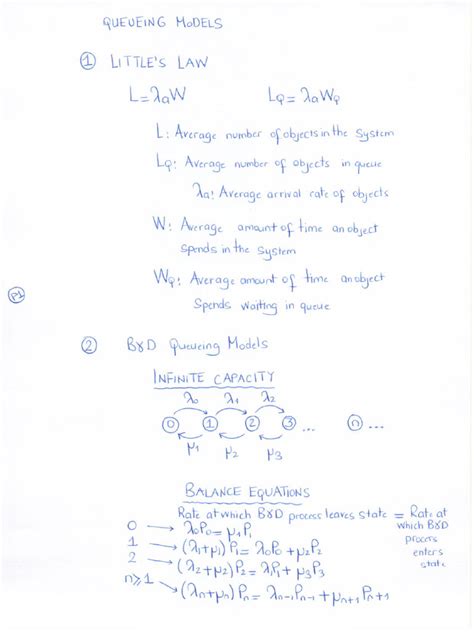 QUEUEING MODELS
① LITTLE'S LAW
L=λaW LQ=λaWQ
L: Average number of objects in the system
LQ: Average number of objects in queue
λa: Average arrival rate of objects
W: Average amount of time an object
spends in the system
WQ: Average amount of time an object
Spends waiting in queue
P1
② B&D Queueing Models
INFINITE CAPACITY
λ0 λ1 λ2
0 1 2 3 ... n ...
μ1 μ2 μ3
BALANCE EQUATIONS
Rate at which B&D process leaves state = Rate at which B&D process enters state
0 → λ0P0=μ1P1
1 → (λ1+μ1)P1=λ0P0+μ2P2
2 → (λ2+μ2)P2=λ1P1+μ3P3
n≥1 → (λn+μn)Pn=λn-1Pn-1+μn+1Pn+1